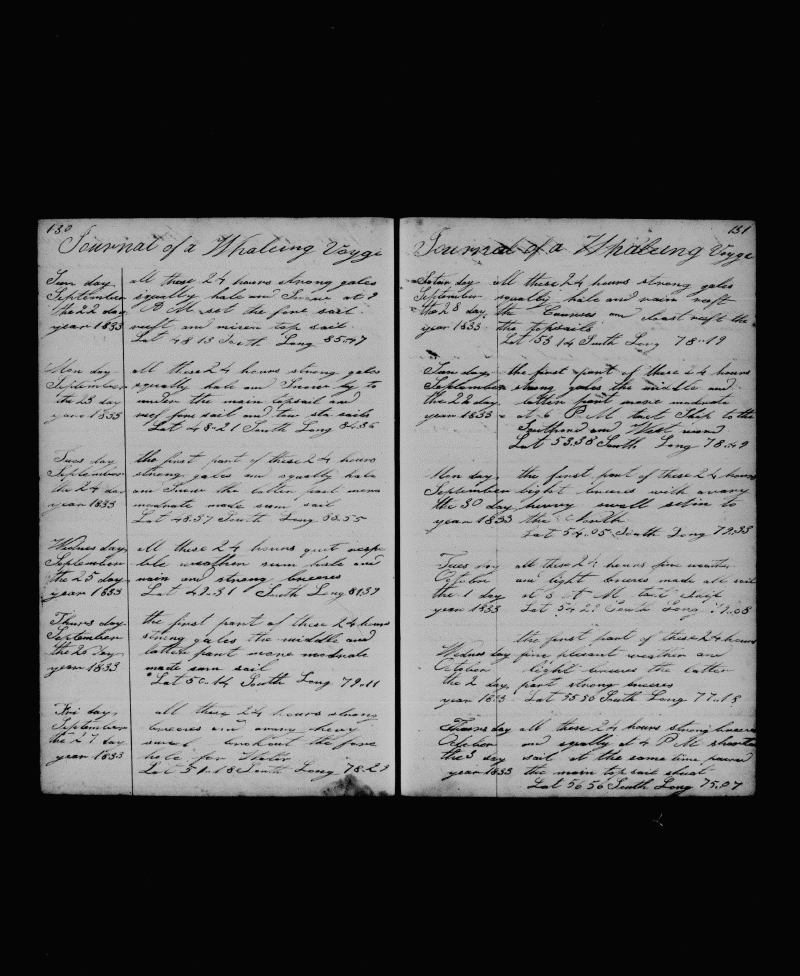 130
Journal of a Whaleing Voyge
Sun day all these 24 hours strong gales
September squally hale and Snow at 9
the 22 day P M set the fore sail
year 1833 reeft an mizen top sail
Lat 48 13 South Long 85..47
Mon day all these 24 hours strong gales
September squally hale and Snow by to
the 23 day under the main topsail and
year 1833 reef fore sail and two sta sails
Lat 48..21 South Long 84.56
Tues day the first part of these 24 hours
September strong gales and squally hale
the 24 day and Snow the latter part more
year 1833 moderate made sum sail
Lat 48.57 South Long 83.55
Wednes day all these 24 hours
September weather sum hale and
the 25 day rain and strong breeses
year 1833 Lat 49.31 South Long 81.39
Thurs day the first part of these 24 hours
September strong gales the middle and
the 26 day latter part more modrate
year 1833 made sum sail
Lat 50.14 South Long 79..11
Fri day all these 24 hours strong
September breeses and a very heavy
the 27 day swell brok out the fore
year 1833 hole for Water
Lat 51..18 South Long 78.29
131
Journal of a Whaleing Voyge
Satur day all these 24 hours strong gales
September squally hale and rain reeft
the 28 day the Courses and close reeft the
year 1833 the topsails
Lat 53 14 South Long 78..19
Sun day the first part of these 24 hours
September strong gales the middle and
the 29 day latter part more moderate
year 1833 at 6 P M tact Ship to the
Southard and West
Lat 53.38 South Long 78.49
Mon day the first part of these 24 hours
September light breeses with a vary
the 30 day hevvy swell setin to
year 1833 the North
Lat 54..05 South Long 79.33
Tues day all these 24 hours fine weather
October and light breeses made all sail
the 1 day at 3 M tact Ship
year 1833 Lat 54 22 South Long 79..08
the first part of these 24 hours
Wednes day fine plesant weather and
October light breeses the latter
the 2 day part strong breeses
year 1833 Lat 55 50 South Long 77..18
Thurs day all these 24 hours strong breeses
October and squally at 4 P M shorten
the 3 day sail at the same time
year 1833 the main top sail sheat
Lat 56 56 South Long 75.07